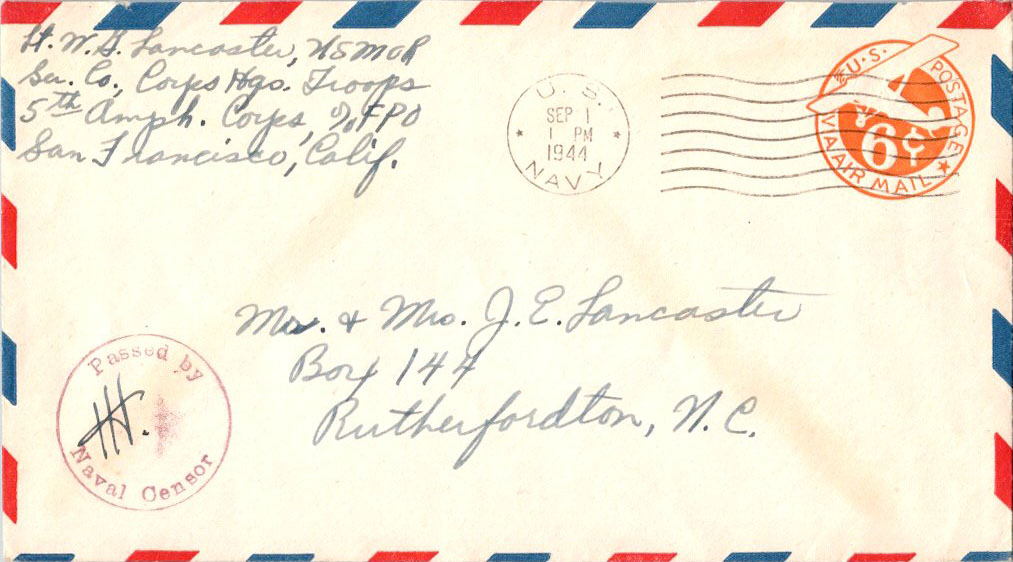 Lt. W. G. Lancaster, USMCR
Ser. Co., Corps Hqs. Troops
5th Amph. Corps, % FPO
San Francisco, Calif.
U. S.
SEP 1
1 PM
1944
NAVY
U.S. POSTAGE
6¢
VIA AIR MAIL
Mr. & Mrs. J. E. Lancaster
Box 144
Rutherfordton, N. C.
Passed by
HH.
Naval Censor